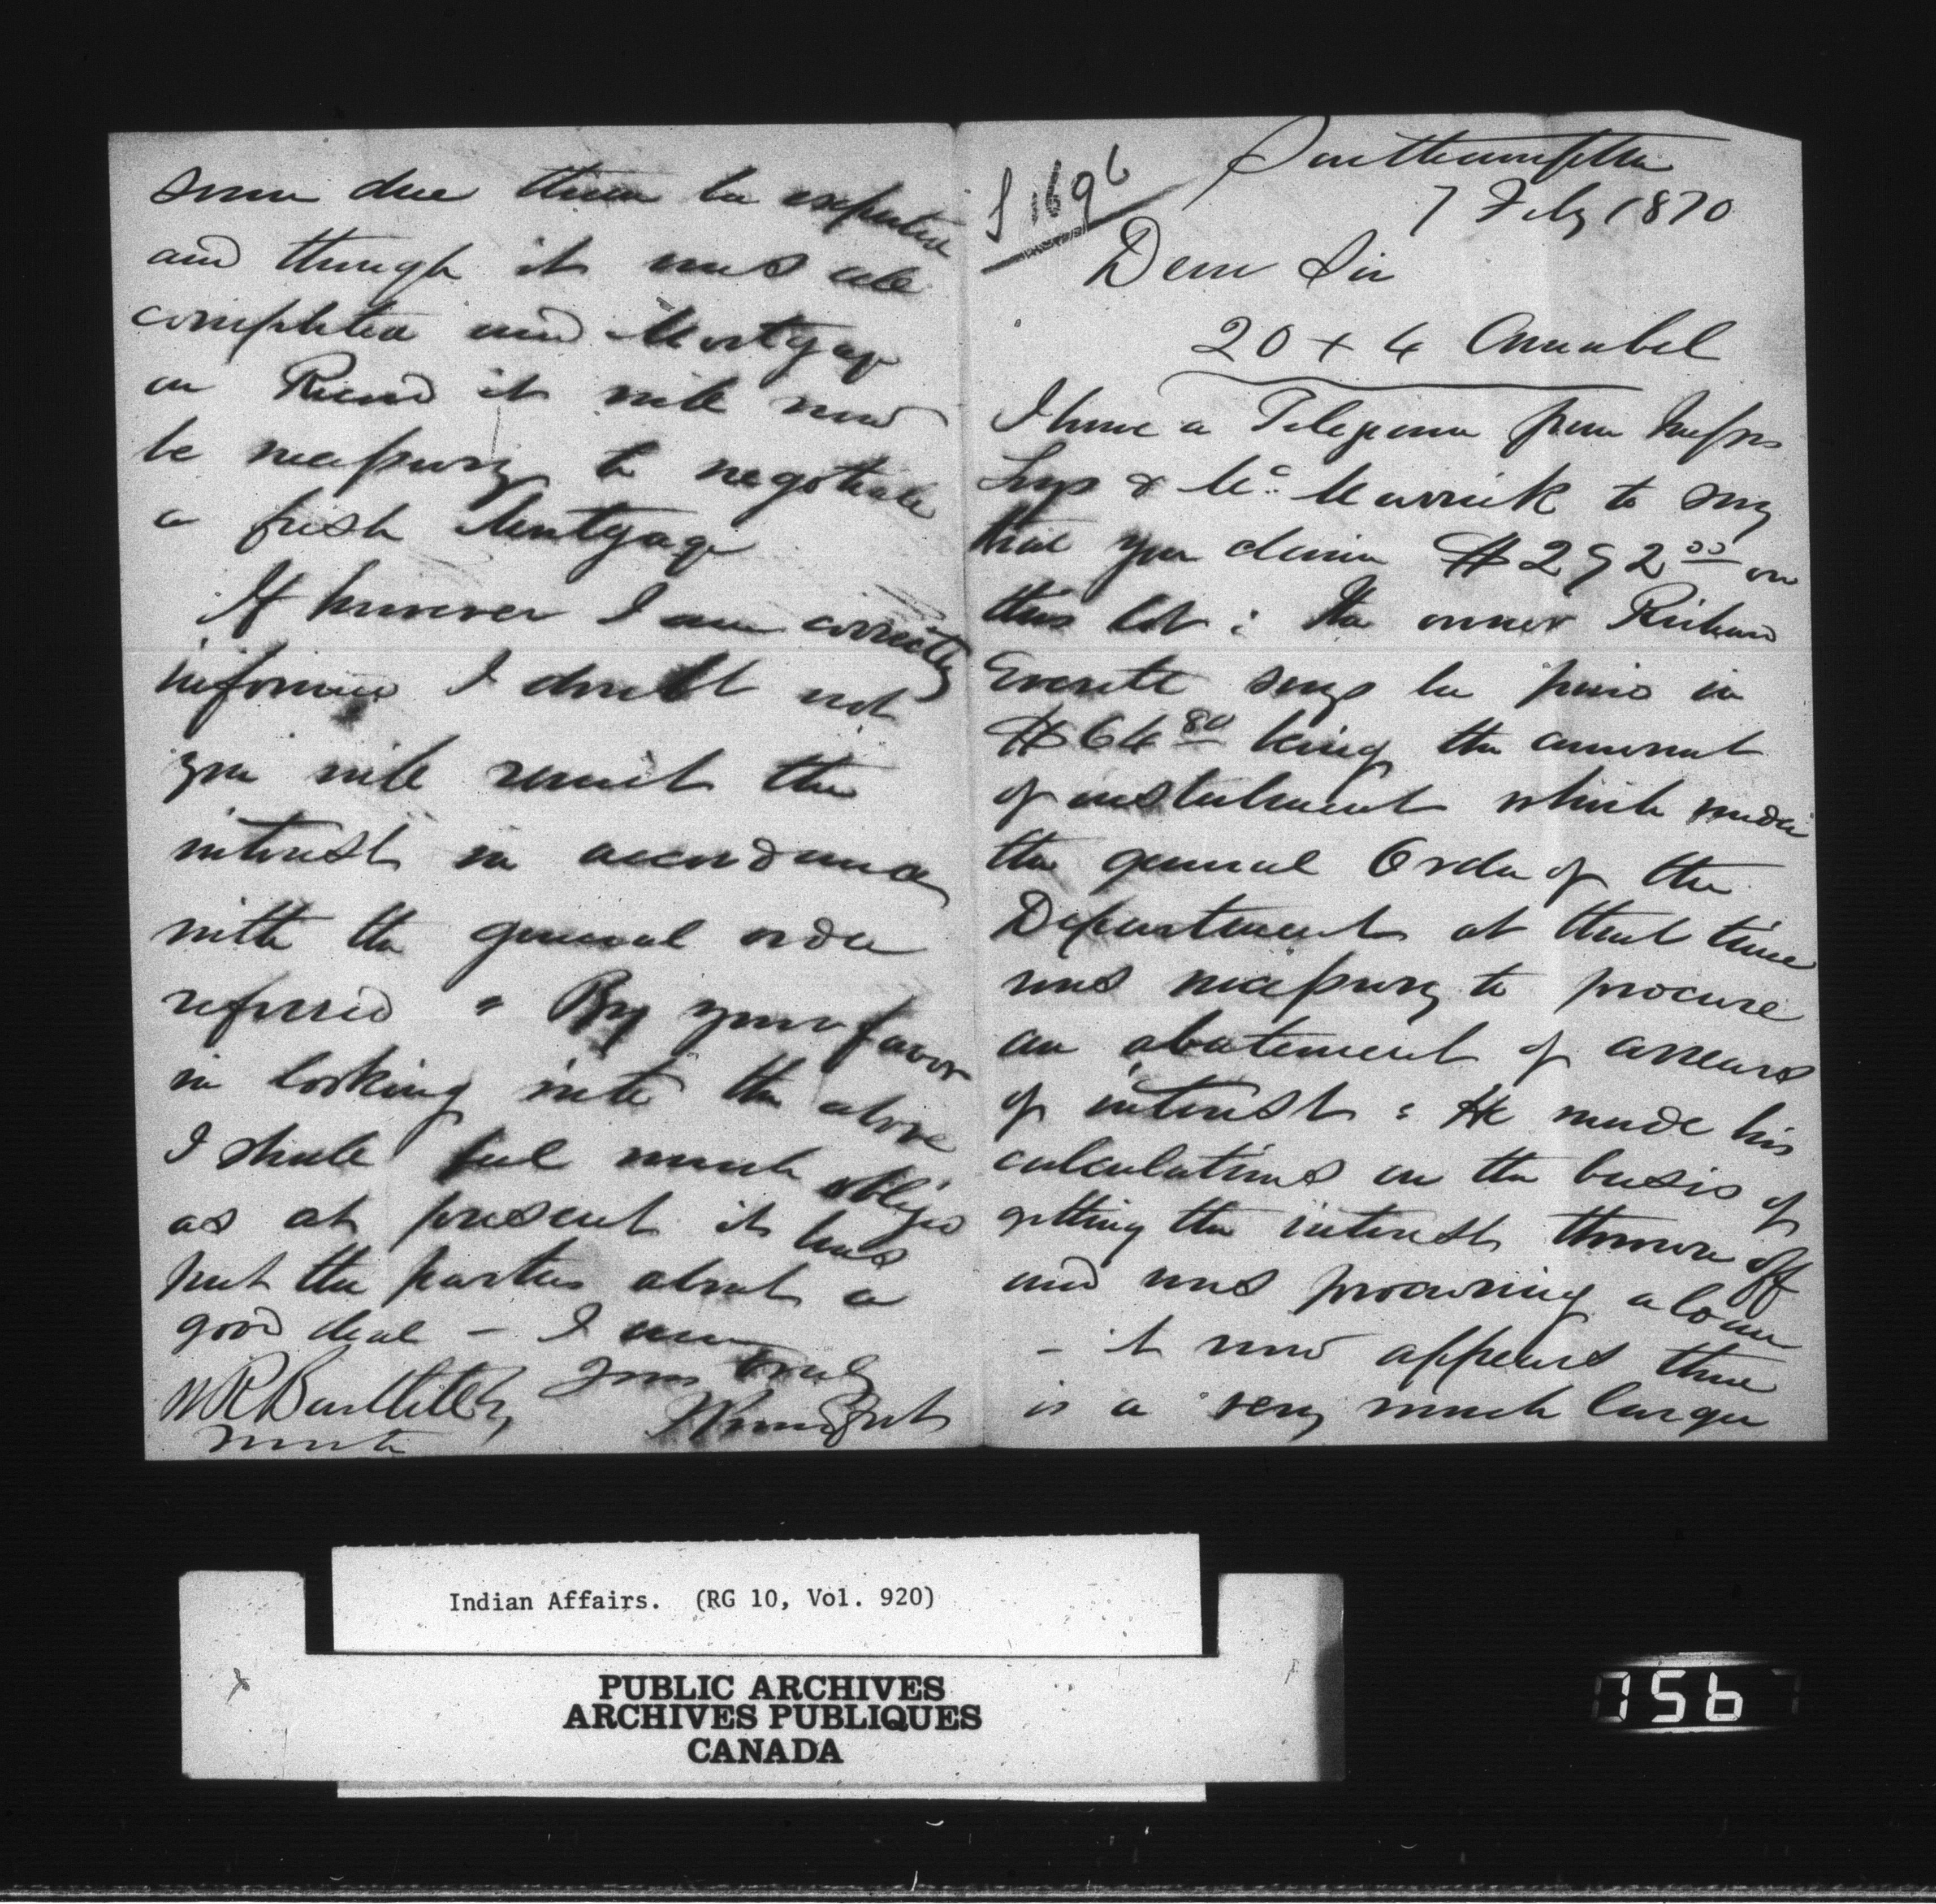 Southampton
7 Feby 1870
Dear Sir
20 + 4 Amabel
I have a Telegram from Messrs
& Mc. Murrich to say
that you claim $292.00 on
this lot : the owner Richard
Everett says he paid in
$64 80 being the amount
of instalment which under
the general Order of the
Department at that time
was necessary to procure
an abatement of arrears
of interest : He made his
calculations on the basis of
getting the interest thrown off
and was procuring a loan
- it now appears there
is a very much larger
sum due than he expected
and though it was all
completed and Mortgage
on Record it will now
be necessary to negotiate
a fresh Mortgage
If however I am correctly
informed I doubt not
you will remit the
interest in accordance
with the general order
referred " By your favor
in looking into the above
I shall feel much obliged
as at present it has
put the parties about a
good deal - I am
Yours truly
W R Bartlett
Indian Affairs. (RG 10, Vol. 920)
PUBLIC ARCHIVES
ARCHIVES PUBLIQUES
CANADA